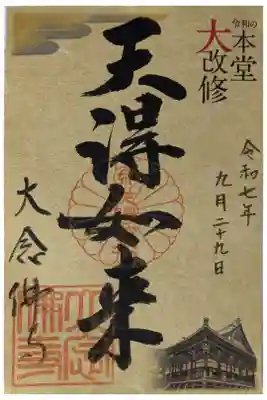 令和の
本堂
大改修
令和七年
九月二十九日
天得如来
大念佛寺